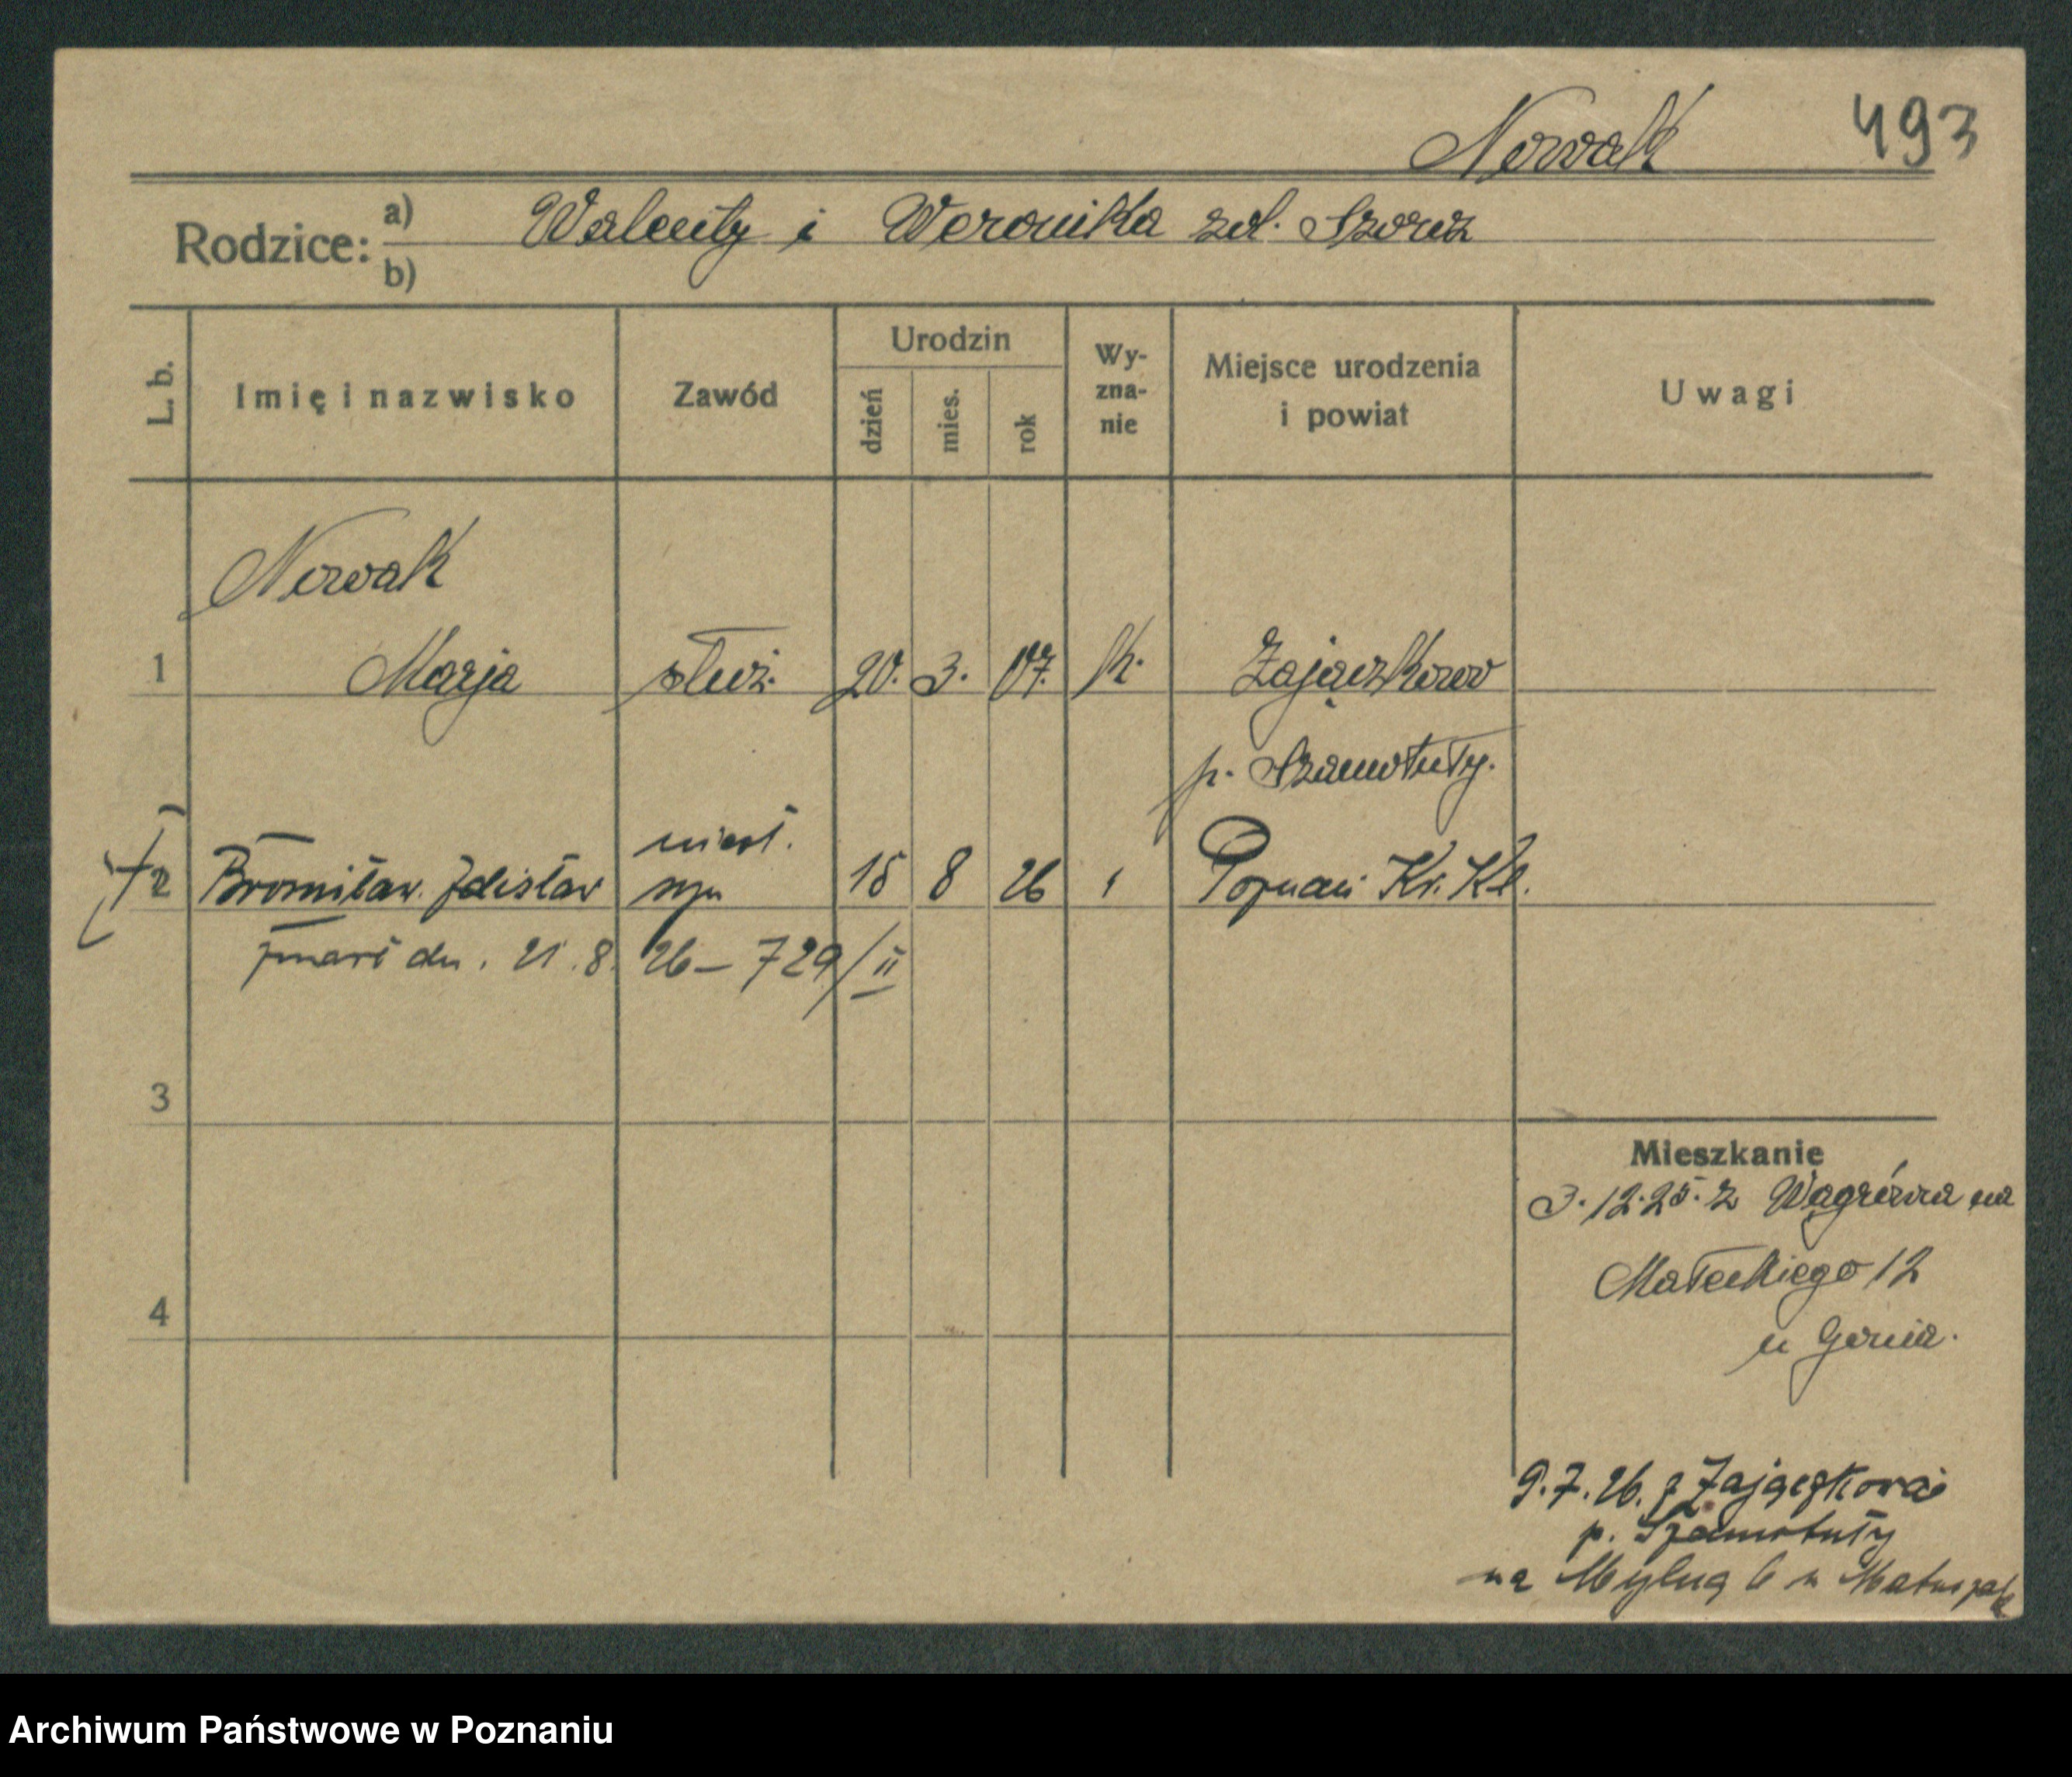 Nowak 493
Rodzice: a) Walenty i Weronika zd.
b)
L. b. Imię i nazwisko Zawód Urodzin dzień mies. rok Wyznanie Miejsce urodzenia i powiat Uwagi
Nowak
1 Marja służ. 20. 3. 07. k. Zajączkowo
p. Szamotuły.
nieśl.
2 Bronisław Zdzisław syn 15 8 26 " Poznań Kr. Kl.
zmarł dn. 21. 8. 26 – 729/II
3
Mieszkanie
3.12.25. z Wągrówca na
Małeckiego 12
4
u
9.7.26. z Zajączkowa
p. Szamotuły
na Mylną 6 u Matuszak
Archiwum Państwowe w Poznaniu